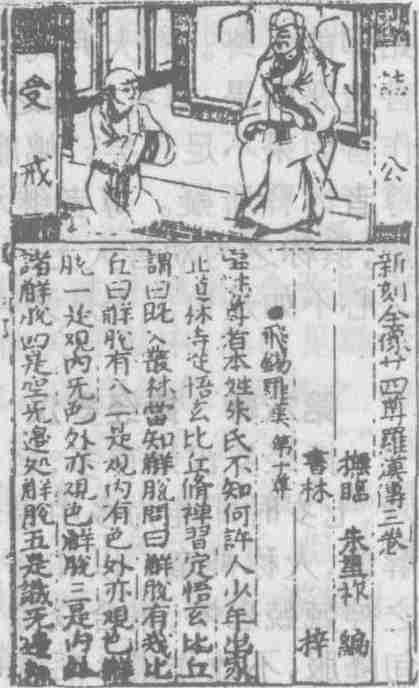 公
受戒
新刻全像廿四尊羅漢傳三卷
撫臨 朱星祚 編
書林 梓
飛錫羅漢 第十尊
尊者本姓朱氏不知何許人少年出家
止道林寺從悟玄比丘脩禅習定悟玄比丘
謂曰既入叢林當知觧脫問曰觧脫有幾比
丘曰觧脫有八一是观内有色外亦观色觧
脫一是观内无色外亦观色觧脫三是内
諸觧脫四是空无邉処觧脫五是識无邉